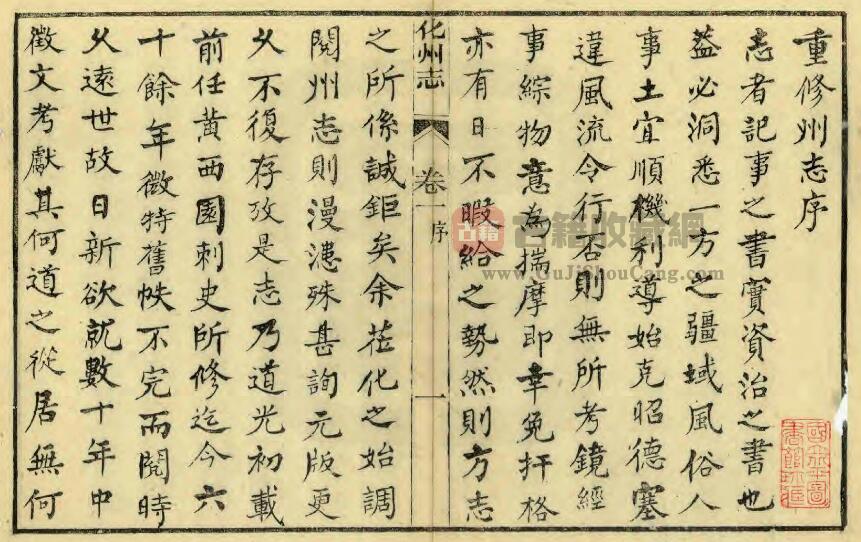 重修州志序
志者記事之書實資治之書也
蓋必洞悉一方之疆域風俗人
事土宜順機利導始克昭德塞
違風流令行否則無所考鏡經
事綜物意為揣摩即幸免扞格
亦有日不暇給之勢然則方志
化州志
卷一序
一
之所係誠鉅矣余蒞化之始調
閱州志則漫漶殊甚詢元版更
久不復存攷是志乃道光初載
前任黃西園刺史所修迄今六
十餘年微特舊帙不完而閱時
久遠世故日新欲就數十年中
徵文考獻其何道之從居無何
古籍
古籍收藏網
www.GuJiShouCang.com